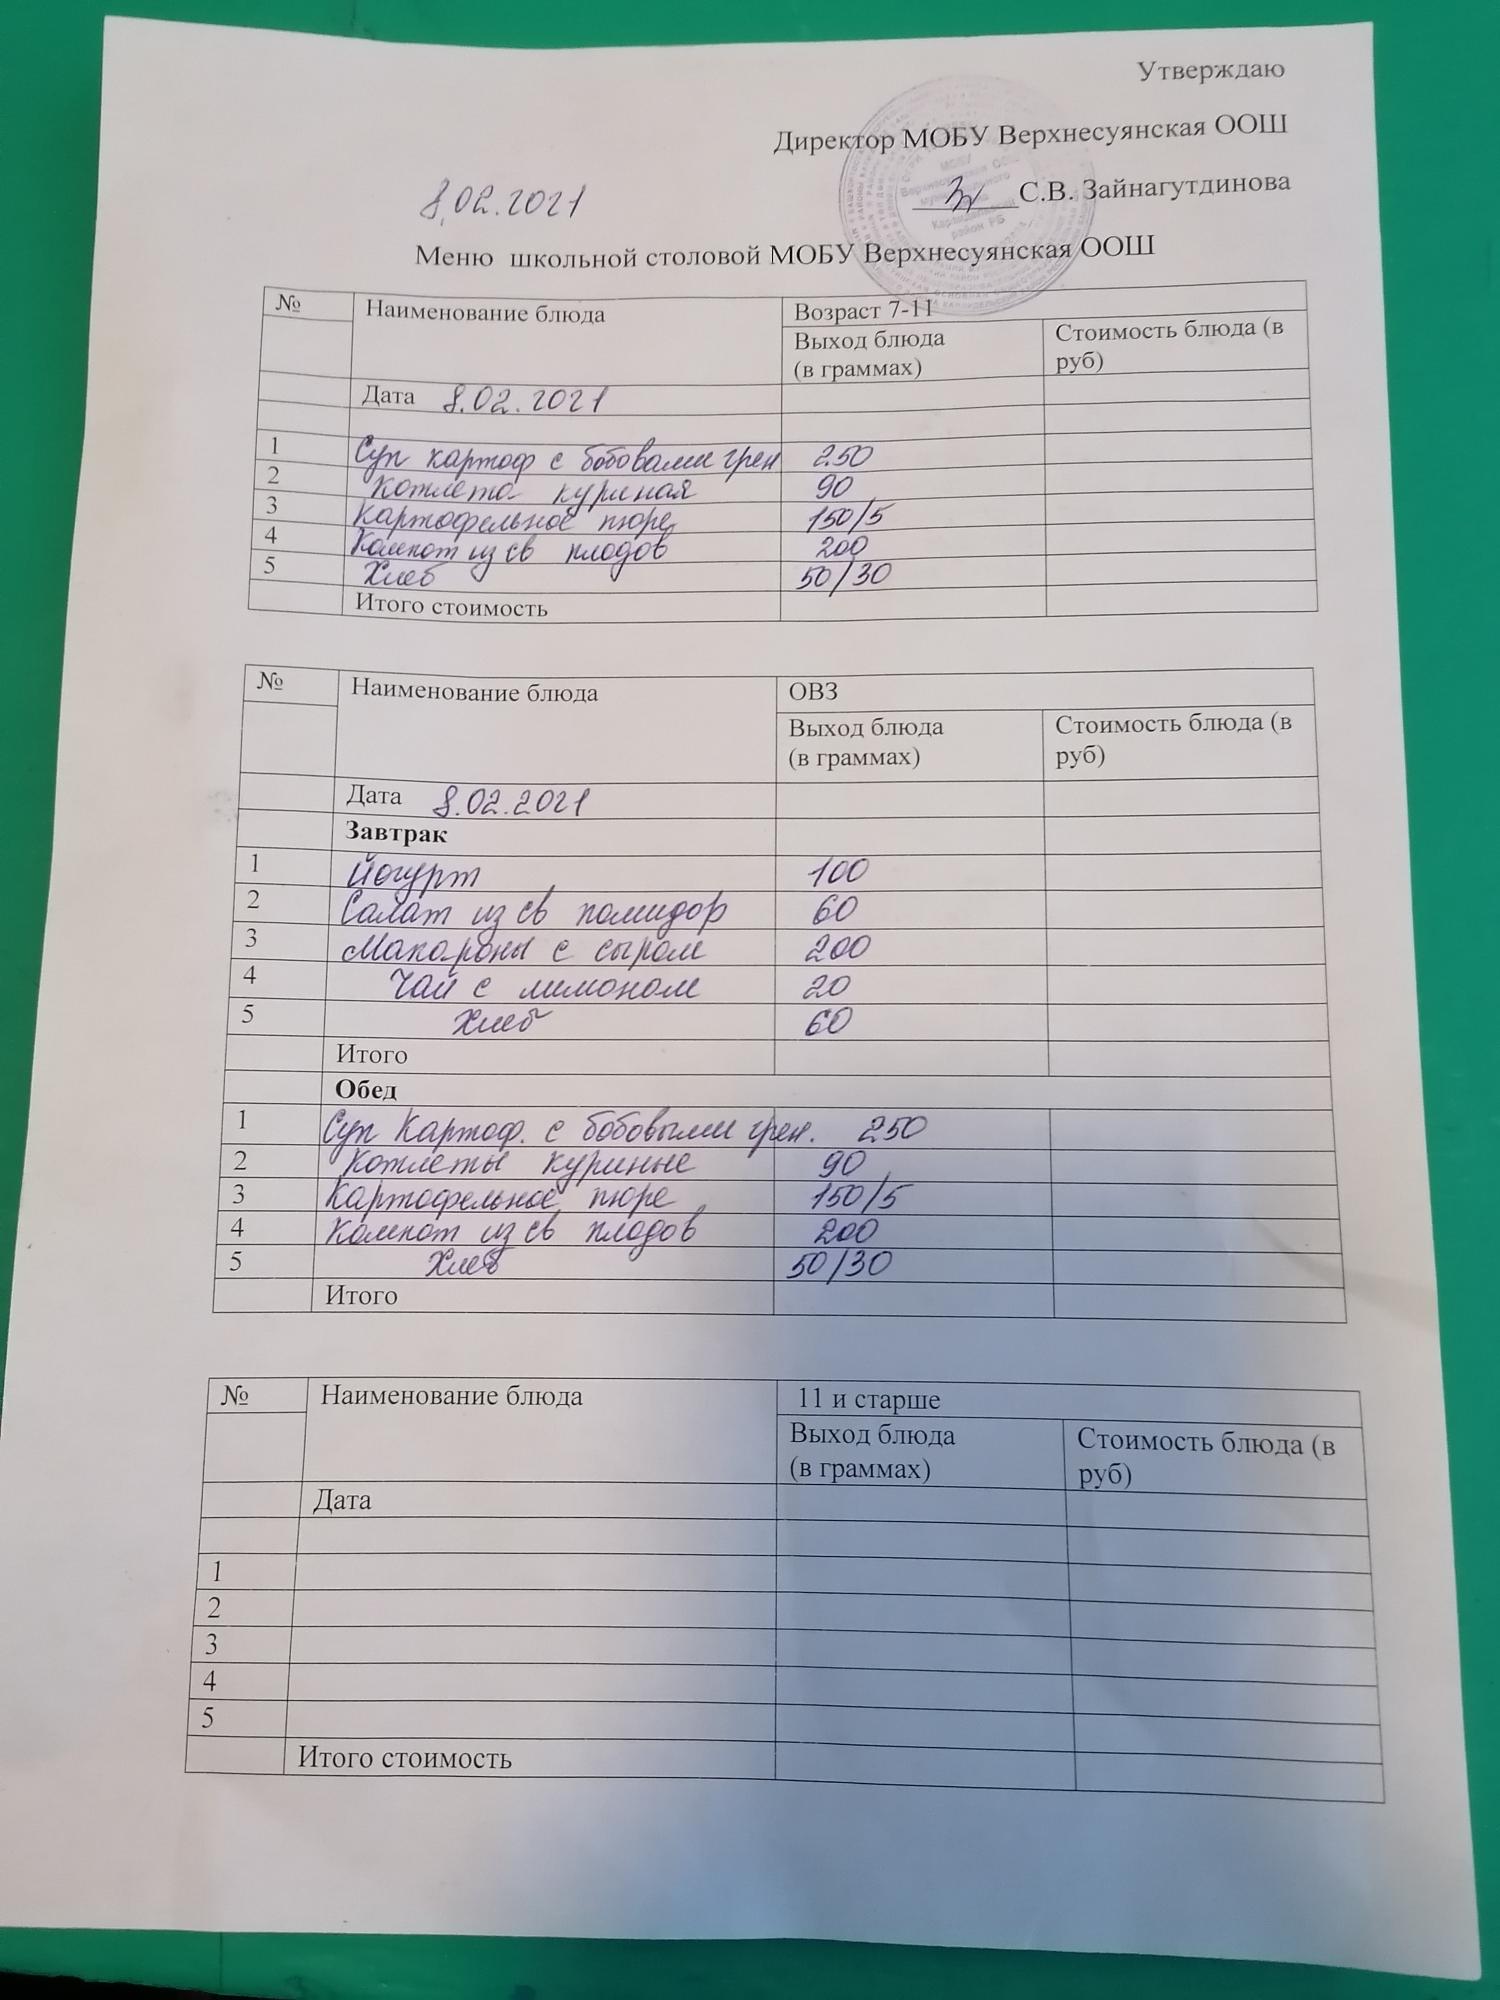 Утверждаю
Директор МОБУ Верхнесуянская ООШ
С.В. Зайнагутдинова
8.02.2021
Меню школьной столовой МОБУ Верхнесуянская ООШ
№ Наименование блюда Возраст 7-11
Выход блюда (в граммах) Стоимость блюда (в руб)
Дата 8.02.2021
1 Суп картоф с бобовами грен 250
2 Котлета куриная 90
3 Картофельное пюре 150/5
4 Компот из св плодов 200
5 Хлеб 50/30
Итого стоимость
№ Наименование блюда ОВЗ
Выход блюда (в граммах) Стоимость блюда (в руб)
Дата 8.02.2021
Завтрак
1 Йогурт 100
2 Салат из св помидор 60
3 Макароны с сыром 200
4 Чай с лимоном 20
5 Хлеб 60
Итого
Обед
1 Суп Картоф. с бобовыми грен. 250
2 Котлеты куриные 90
3 Картофельное пюре 150/5
4 Компот из св плодов 200
5 Хлеб 50/30
Итого
№ Наименование блюда 11 и старше
Выход блюда (в граммах) Стоимость блюда (в руб)
Дата
1
2
3
4
5
Итого стоимость